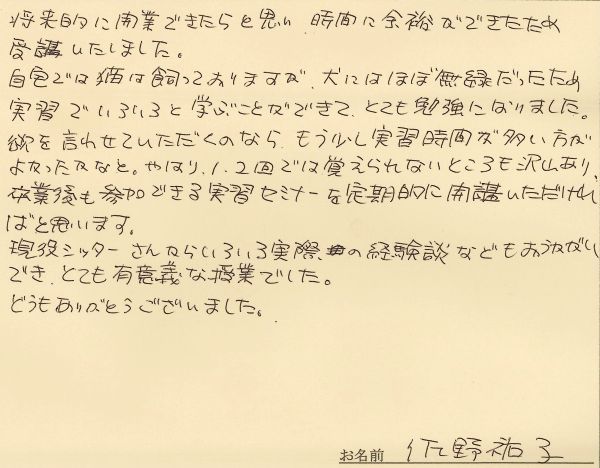 将来的に開業できたらと思い 時間に余裕ができたため
受講いたしました。
自宅では猫は飼っておりますが、犬にはほぼ無縁だったため
実習でいろいろと学ぶことができて、とても勉強になりました。
欲を言わせていただくのなら、もう少し実習時間が多い方が
よかったかなと。やはり、1、2回では覚えられないところも沢山あり、
卒業後も参加できる実習セミナーを定期的に開講いただけれ
ばと思います。
現役シッターさんならいろいろ実際の経験談などもおうかがい
でき、とても有意義な授業でした。
どうもありがとうございました。
お名前 佐野祐子